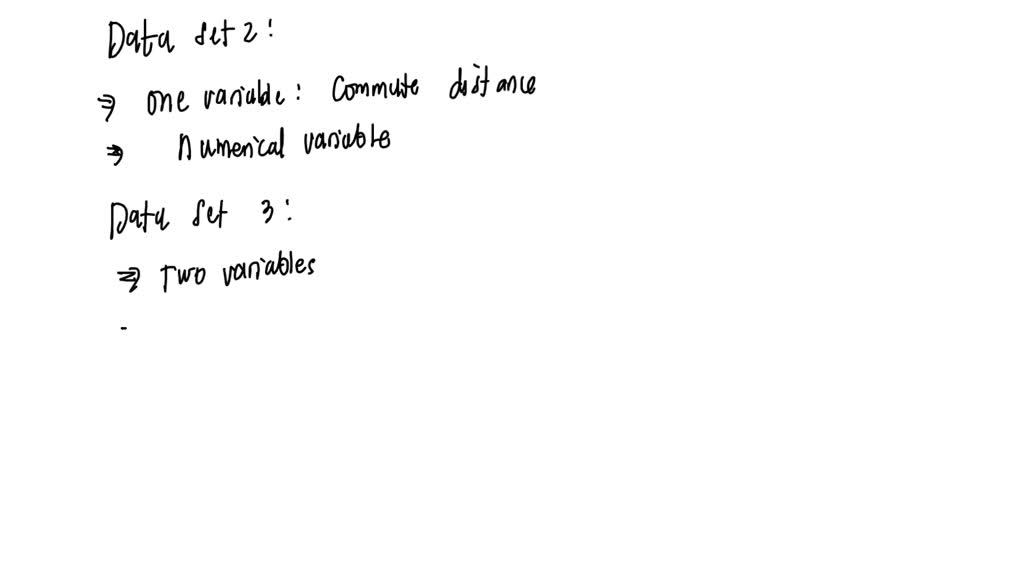 Data set 2:
⇒ one variable: Commute distance
⇒ numerical variable
Data set 3:
⇒ Two variables
-